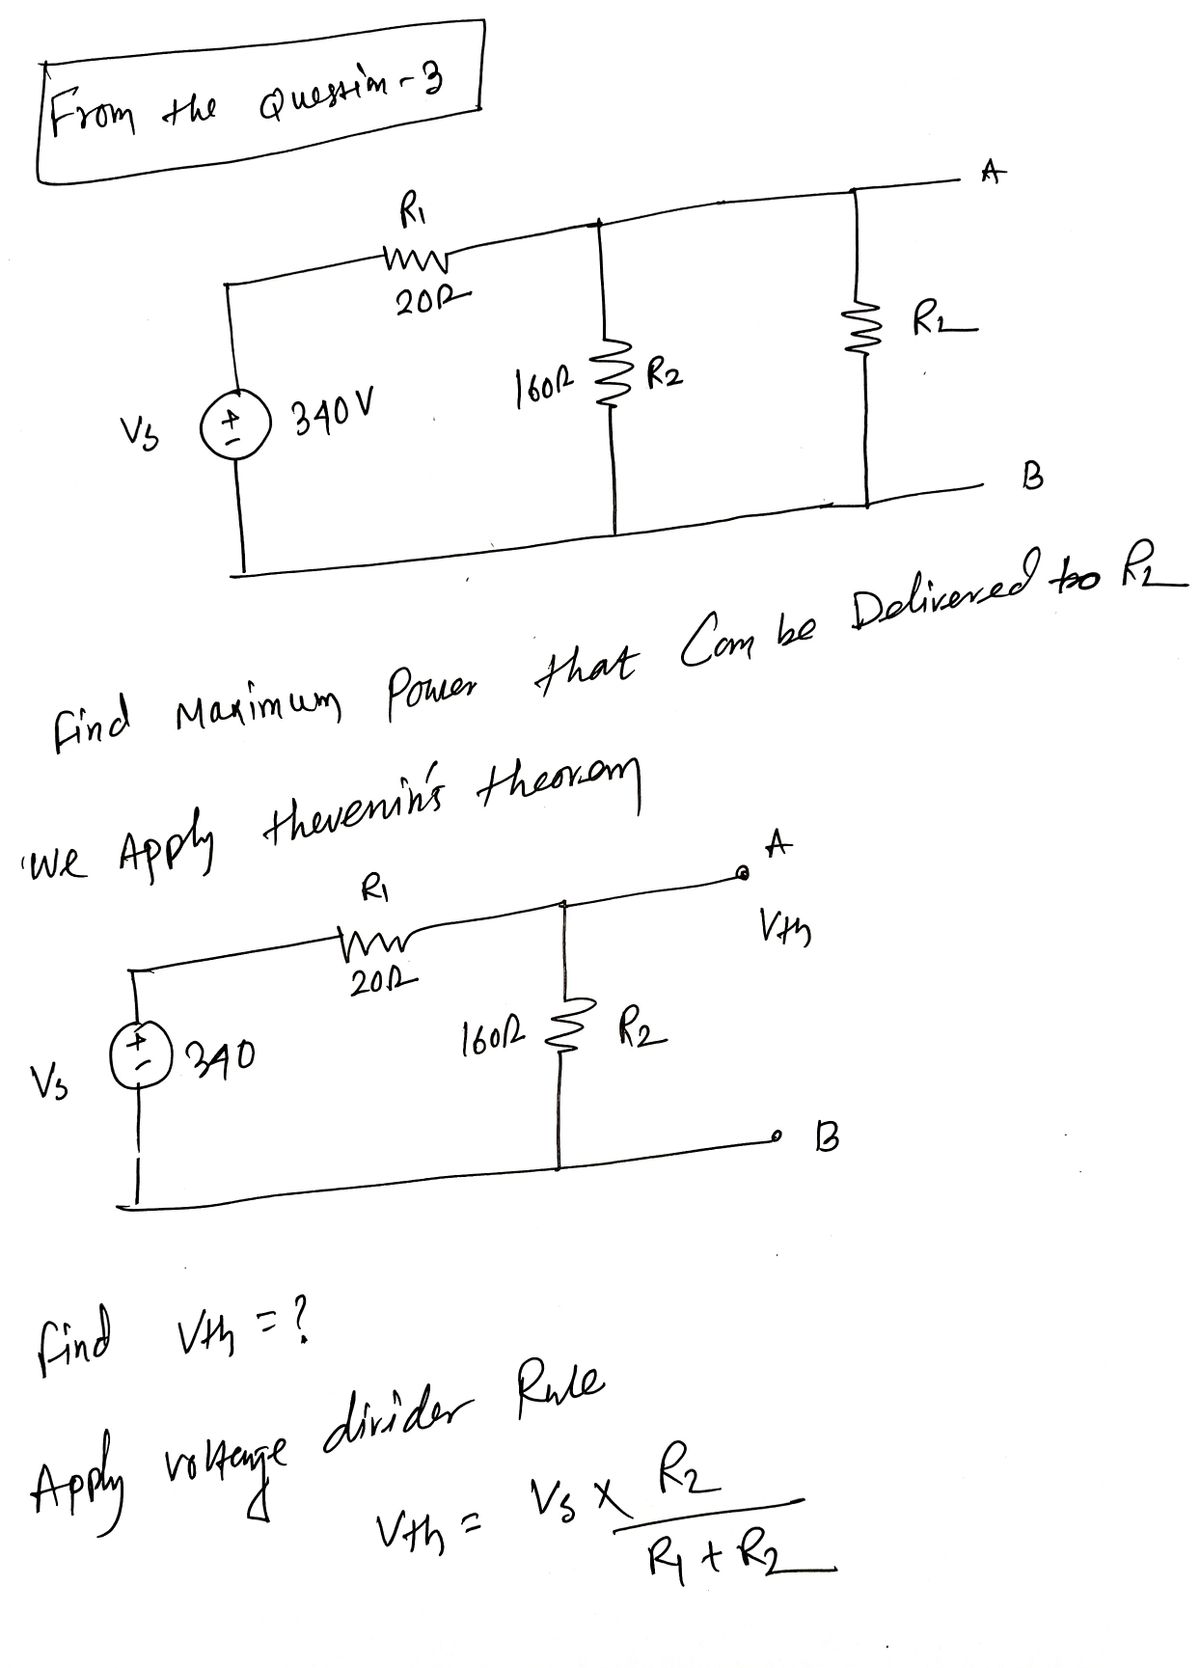 From the Question-3
A
R1
20Ω
160Ω
R2
RL
Vs
+
-
340V
B
Find Maximum Power that Can be Delivered to RL
We Apply thevenin's theorem
A
R1
20Ω
Vth
160Ω
R2
Vs
+
-
340
B
Find Vth = ?
Apply voltage divider Rule
Vth = Vs x R2
R1 + R2